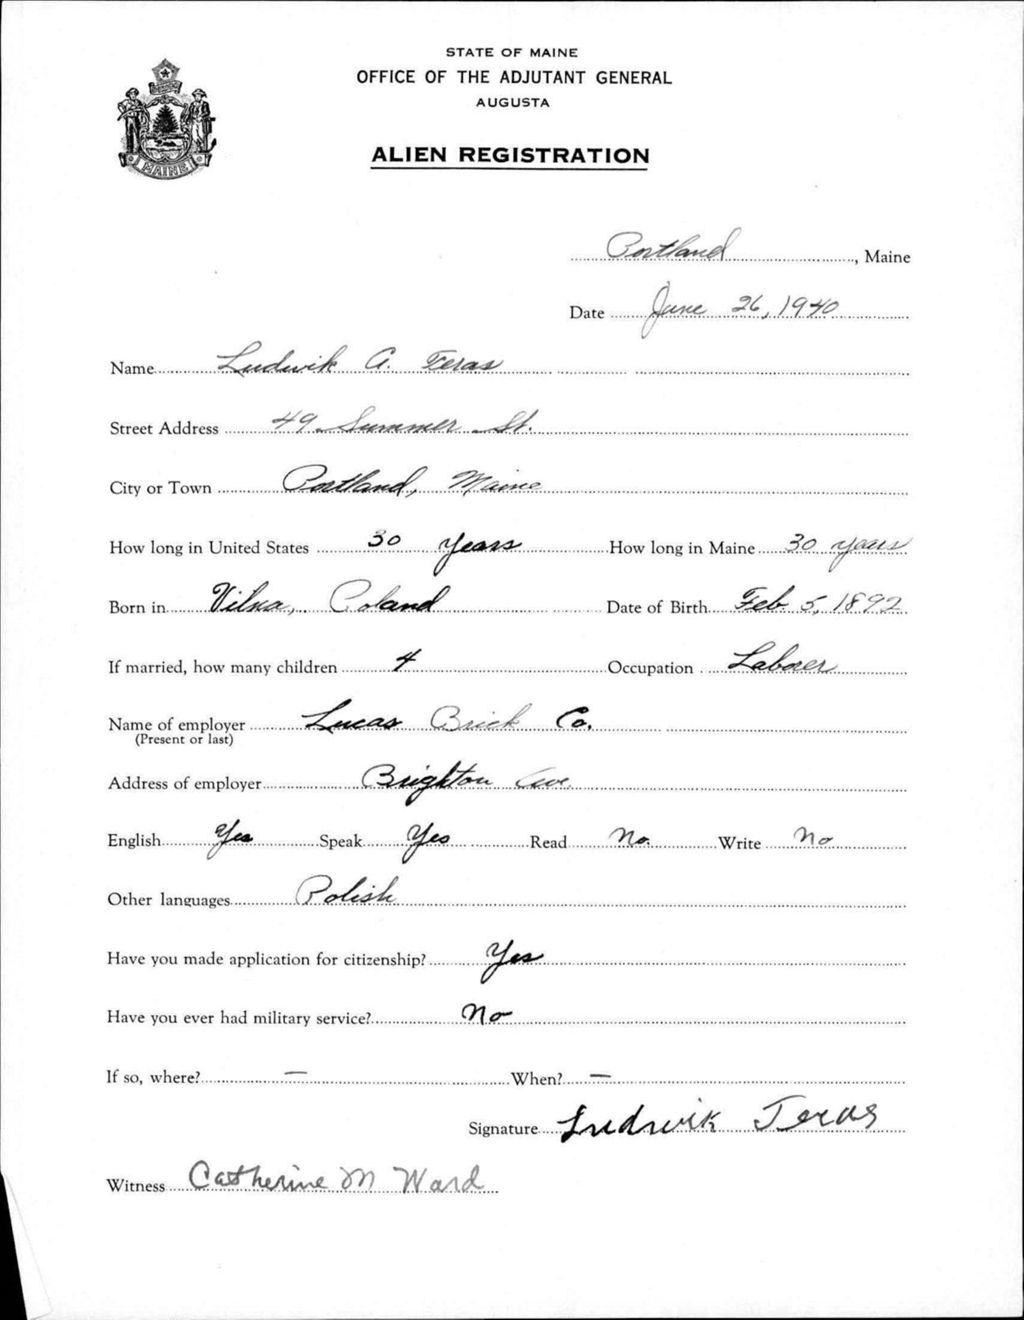 STATE OF MAINE
OFFICE OF THE ADJUTANT GENERAL
AUGUSTA
ALIEN REGISTRATION
MAINE
Portland, Maine
Date June 26, 1940
Name Ludwik A. Teras
Street Address 49 Summer St.
City or Town Portland, Maine
How long in United States 30 years How long in Maine 30 years
Born in Vilna, Poland Date of Birth Feb. 5, 1892
If married, how many children 4 Occupation Laborer
Name of employer Lucas Brick Co.
(Present or last)
Address of employer Brighton Ave.
English Yes Speak Yes Read No. Write No
Other languages Polish
Have you made application for citizenship? Yes
Have you ever had military service? No
If so, where? — When? —
Signature Ludwik Teras
Witness Catherine M Ward